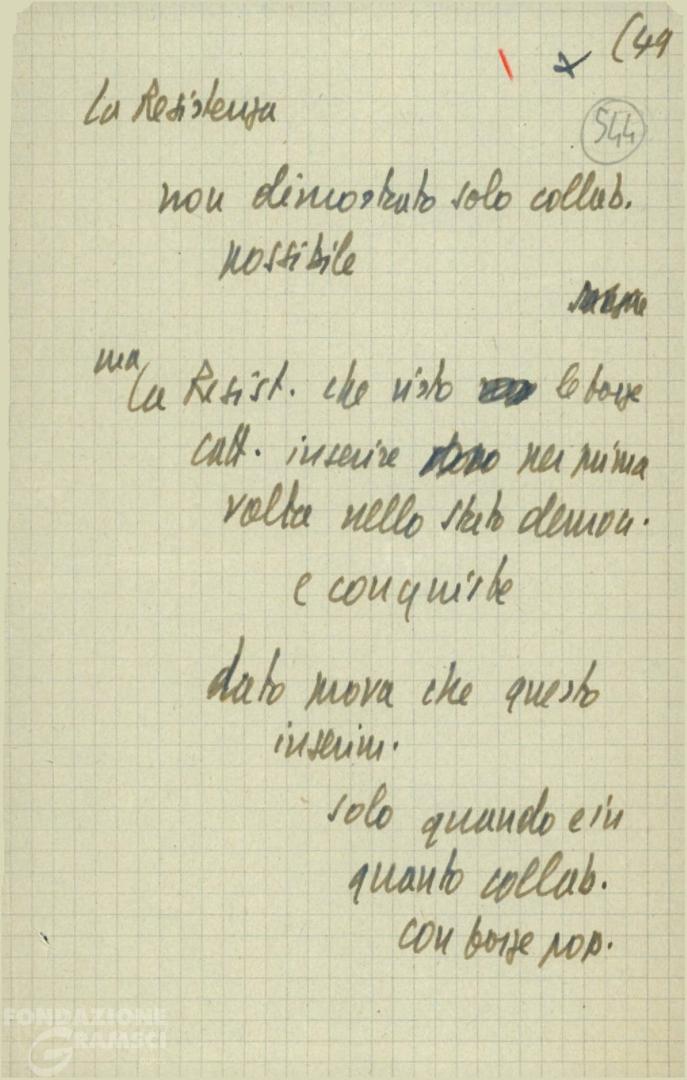 (49
544
La Resistenza
non dimostrato solo collab.
possibile
ma
La Resist. che visto le forze
catt. inserire per prima
volta nello stato democr.
e conquiste
dato prova che questo
inserim.
solo quando e in
quanto collab.
con forze pop.
FONDAZIONE
GRAMSCI